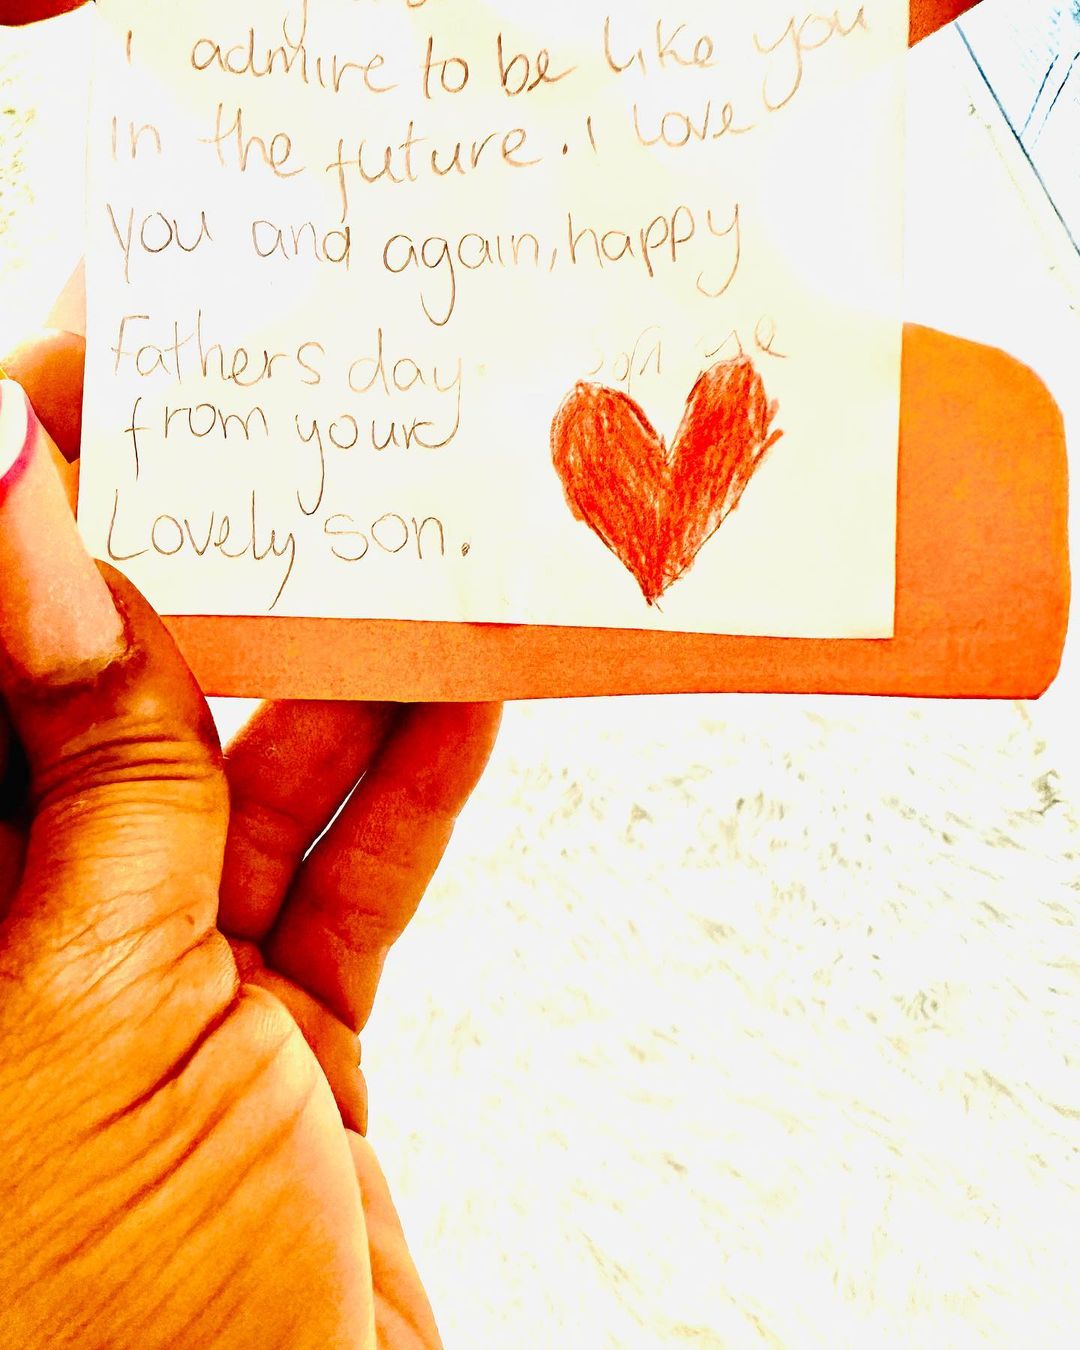 I admire to be like you
in the future. I love
you and again, happy
Fathers day
from your
Lovely son.